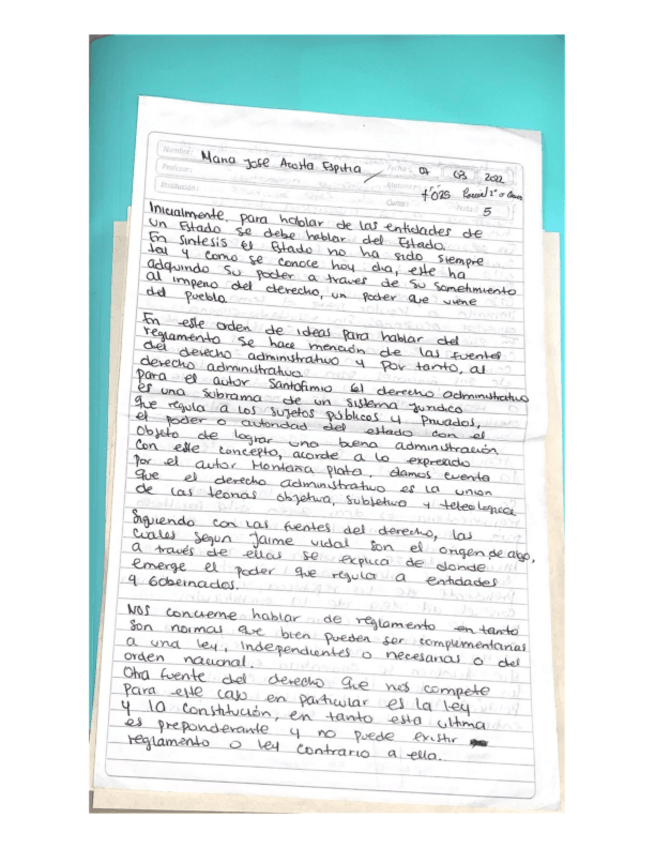 Nombre: Maria José Acosta Espitia Fecha: 07 03 2022
Profesor: Materia:
Institución: Curso: Nota: 5
Inicialmente, para hablar de las entidades de
un Estado se debe hablar del Estado.
En sintesis el Estado no ha sido siempre
tal y como se conoce hoy dia, este ha
adquirido su poder a traves de su sometimiento
al imperio del derecho, un poder que viene
del pueblo.
En este orden de ideas para hablar del
reglamento se hace mención de las fuentes
del derecho administrativo y por tanto, al
derecho administrativo.
Para el autor Santofimio el derecho administrativo
es una subrama de un sistema juridico
que regula a los sujetos públicos y privados,
el poder o autoridad del estado con el
objeto de lograr una buena administración
Con este concepto, acorde a lo expresado
por el autor Montaña Plata, damos cuenta
que el derecho administrativo es la union
de las teorias objetiva, subjetiva y teleologica
Siguiendo con las fuentes del derecho, las
cuales segun Jaime vidal son el origen de algo,
a través de ellas se explica de donde
emerge el poder que regula a entidades
y gobernados.
Nos concierne hablar de reglamento en tanto
son normas que bien pueden ser complementarias
a una ley, independientes o necesarias o del
orden nacional.
Otra fuente del derecho que nos compete
para este caso en particular es la ley
y la constitución, en tanto esta ultima
es preponderante y no puede existir
reglamento o ley contrario a ella.